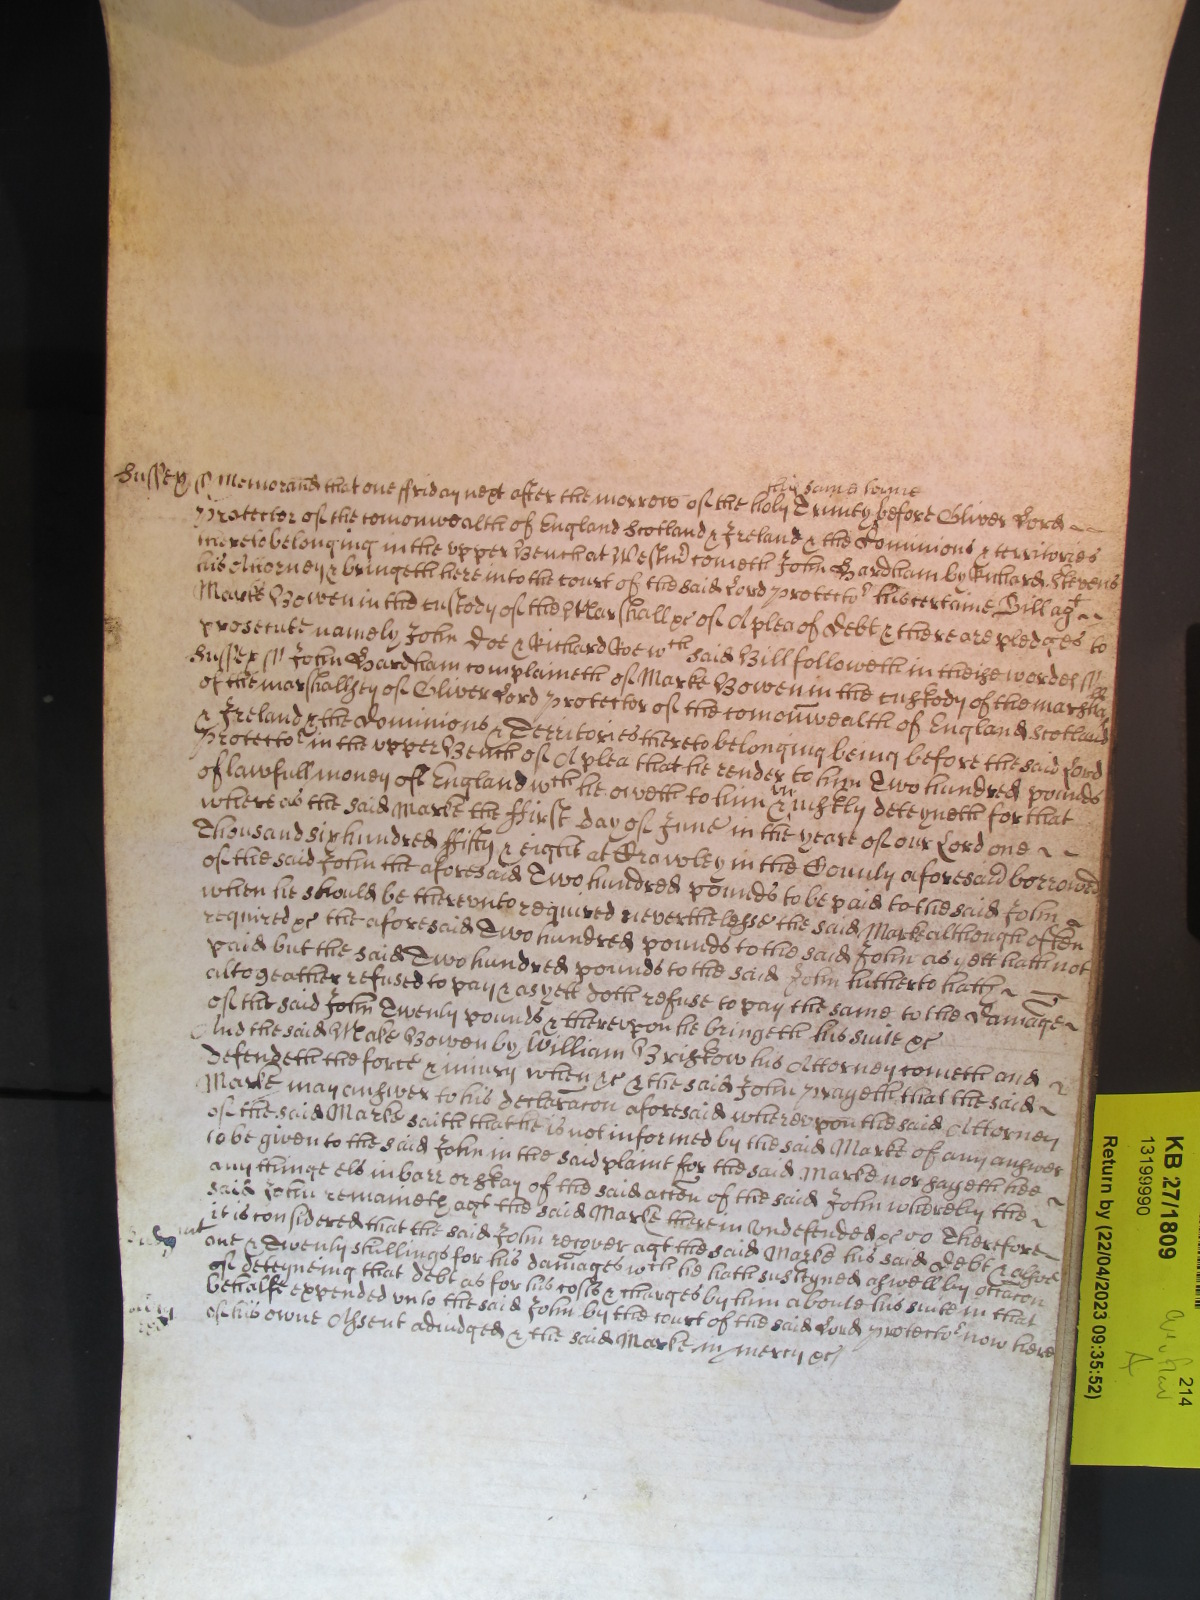 this same terme
Sussex ss Memorand that one ffriday next after the morrow of the holy Trinity before Oliver Lord
Protector of the comonwealth of England Scotland & Ireland & the Dominions & territories
thereto belonging in the upper Bench at Westmr cometh John Bardham by Richard Stevens
his Attorney & bringeth here into the court of the said Lord Protector his certaine Bill agt
Marke Bowen in the custody of the Marshall &c of A plea of debt & there are pledges to
prosecute namely John Doe & Richard Roe wch said Bill followeth in theise wordes ss
Sussex ss John Bardham complaineth of Marke Bowen in the custody of the marshall
of the marshallsey of Oliver Lord Protector of the comonwealth of England Scotland
& Ireland & the Dominions & Territories thereto belonging being before the said Lord
Protector in the upper Bench of A plea that he render to him Two hundred pounds
of lawfull money of England wch he oweth to him & uniustly deteyneth for that
whereas the said Marke the ffirst day of June in the yeare of our Lord one
Thousand six hundred ffifty & eight at Crawley in the County aforesaid borrowed
of the said John the aforesaid Two hundred pounds to be paid to the said John
when he should be therevnto required neverthelesse the said Marke although often
required &c the aforesaid Two hundred pounds to the said John as yett hath not
paid but the said Two hundred pounds to the said John hitherto hath
altogeather refused to pay & as yett doth refuse to pay the same to the Damage
of the said John Twenty pounds & therevpon he bringeth his suite &c
And the said Marke Bowen by William Briskow his Attorney cometh and
defendeth the force & iniury when &c & the said John prayeth that the said
Marke may answer to his declaracon aforesaid wherevpon the said Attorney
of the said Marke saith that he is not informed by the said Marke of any answer
to be given to the said John in the said plaint for the said Marke nor sayeth hee
any thinge els in barr or stay of the said accon of the said John whereby the
said John remaineth agt the said Marke therein vndefended &c Therefore
it is considered that the said John recover agt the said Marke his said debt & alsoe
one & Twenty shillings for his damages wch he hath susteyned aswell by occacon
of deteyneing that debt as for his costs & charges by him aboute his suite in that
behalfe expended vnto the said John by the court of the said Lord Protector now here
of his owne Assent adiudged & the said Marke in mercy &c
KB 27/1809
13199990
214
Return by (22/04/2023 09:35:52)